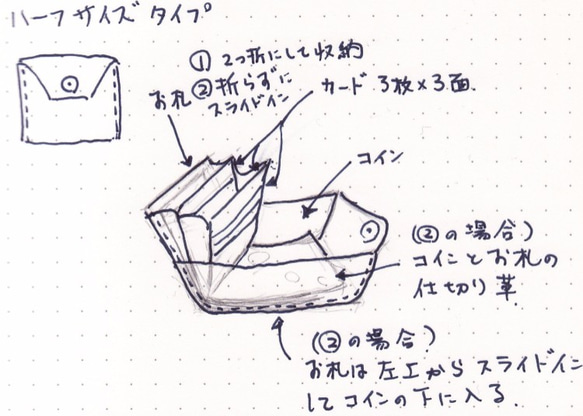 ハーフサイズタイプ
① 2つ折にして収納
お札 ② 折らずに
スライドイン
カード 3枚×3面.
コイン
(②の場合)
コインとお札の
仕切り革
(②の場合)
お札は左上からスライドイン
してコインの下に入る.